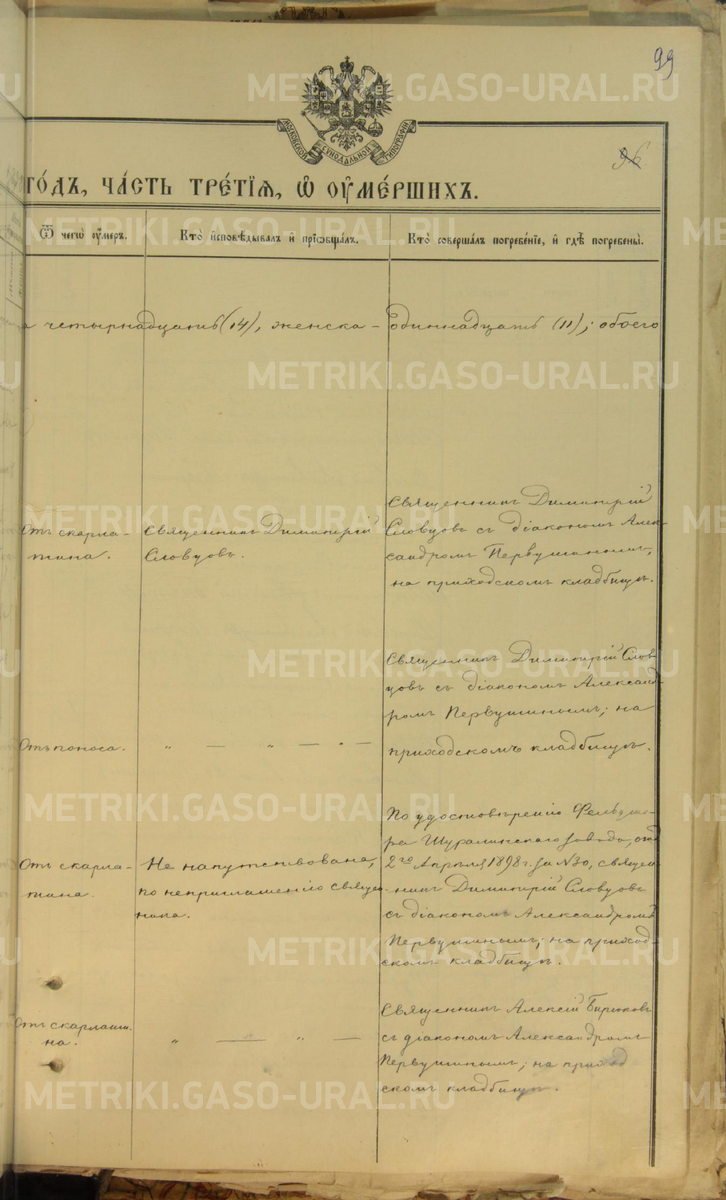 99
96
МОСКОВСКОЙ СѴНОДАЛЬНОЙ ТИПОГРАФІИ
ГО́ДЪ, ЧА́СТЬ ТРЕ́ТІѦ, Ѡ҆ ОУ҆МЕ́РШИХЪ.
Ѿ чегѡ̀ оу҆́меръ.
Кто̀ и҆сповѣ́дывалъ и҆ прїѡбща́лъ.
Кто̀ соверша́лъ погребе́нїе, и҆ гдѣ̀ погребены̀.
а четырнадцать (14), женска- одиннадцать (11); обоего
Отъ скарла-
тина.
Священникъ Димитрій
Словцовъ.
Священникъ Димитрій
Словцовъ съ діакономъ Алек-
сандромъ Первушинымъ,
на приходскомъ кладбищѣ.
Отъ поноса.
„ — „ — „ —
Священникъ Димитрій Слов
цовъ съ діакономъ Александ
ромъ Первушинымъ; на
приходскомъ кладбищѣ.
Отъ скарла-
тина.
Не напутствована,
по неприглашенію священ
ника.
По удостовѣренію Фельдше-
ра Шуралинскаго завода, отъ
2го Апрѣля 1898 г. за № 30, священ
никъ Димитрій Словцовъ
съ діакономъ Александромъ
Первушинымъ; на приход-
скомъ кладбищѣ.
Отъ скарлати-
на.
„ — „ —
Священникъ Алексій Бирюковъ
съ діакономъ Александромъ
Первушинымъ; на приход
скомъ кладбищѣ.
METRIKI.GASO-URAL.RU